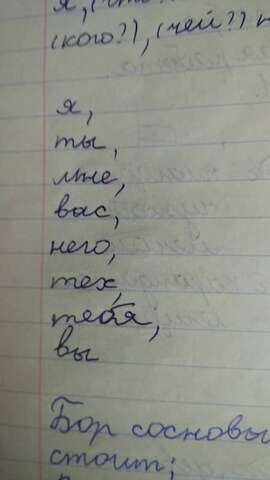 (кого?), (чей?)
я,
ты,
мне,
вас,
него,
тех,
тебя,
вы
Бор сосновы
стоит;